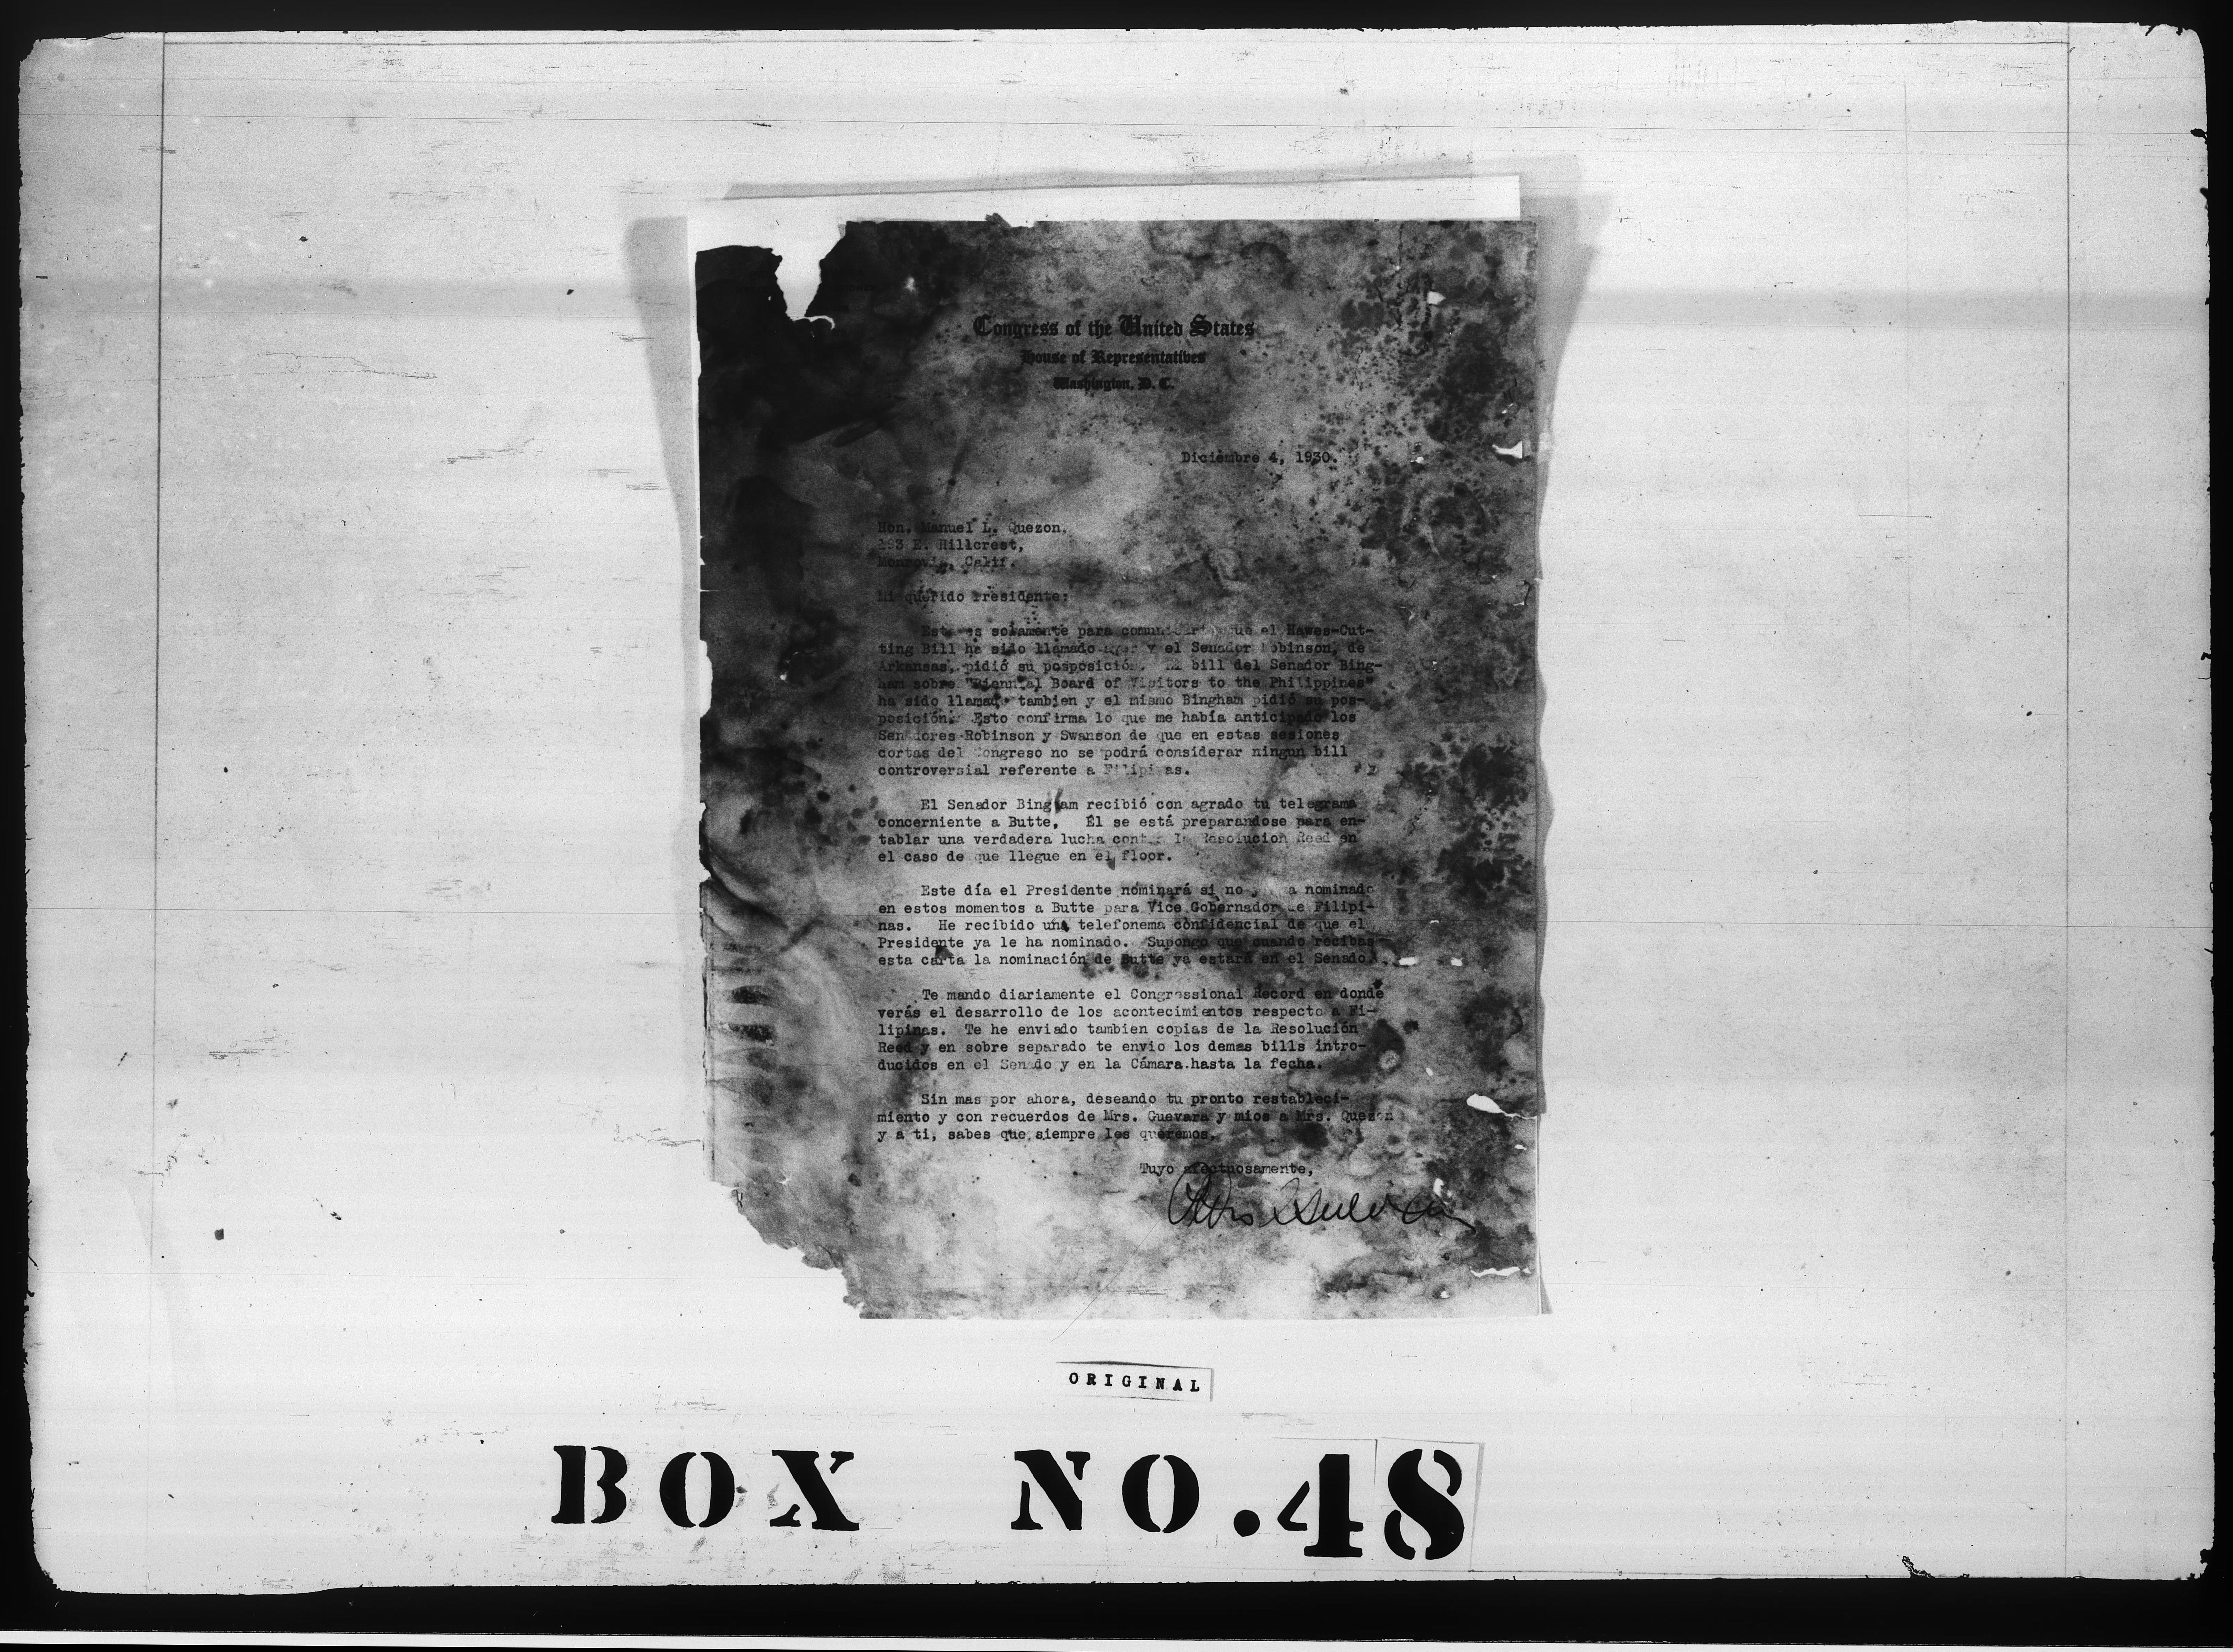 Congress of the United States
House of Representatives
Washington, D. C.
Diciembre 4, 1930.
Hon. Manuel L. Quezon,
293 E. Hillcrest,
Monrovia, Calif.
Mi querido Presidente:
Esta es solamente para que el Hawes-Cut-
ting Bill ha sido llamado ayer y el Senador Robinson, de
Arkansas, pidió su posposición. El bill del Senador Bing-
ham sobre "Biennial Board of Visitors to the Philippines"
ha sido llamado tambien y el mismo Bingham pidió su pos-
posición. Esto confirma lo que me había anticipado los
Senadores Robinson y Swanson de que en estas sesiones
cortas del Congreso no se podrá considerar ningun bill
controversial referente a Filipinas.
El Senador Bingham recibió con agrado tu telegrama
concerniente a Butte. Él se está preparandose para en-
tablar una verdadera lucha contra la Resolucion Reed en
el caso de que llegue en el floor.
Este día el Presidente nominará si no a nominado
en estos momentos a Butte para Vice Gobernador de Filipi-
nas. He recibido una telefonema confidencial de que el
Presidente ya le ha nominado. Supongo que cuando recibas
esta carta la nominación de Butte ya estará en el Senado.
Te mando diariamente el Congressional Record en donde
verás el desarrollo de los acontecimientos respecto a Fi-
lipinas. Te he enviado tambien copias de la Resolución
Reed y en sobre separado te envio los demas bills intro-
ducidos en el Senado y en la Cámara hasta la fecha.
Sin mas por ahora, deseando tu pronto restableci-
miento y con recuerdos de Mrs. Guevara y mios a Mrs. Quezon
y a ti, sabes que siempre les queremos.
Tuyo afectuosamente,
Pedro Guevara
ORIGINAL
BOX NO.48